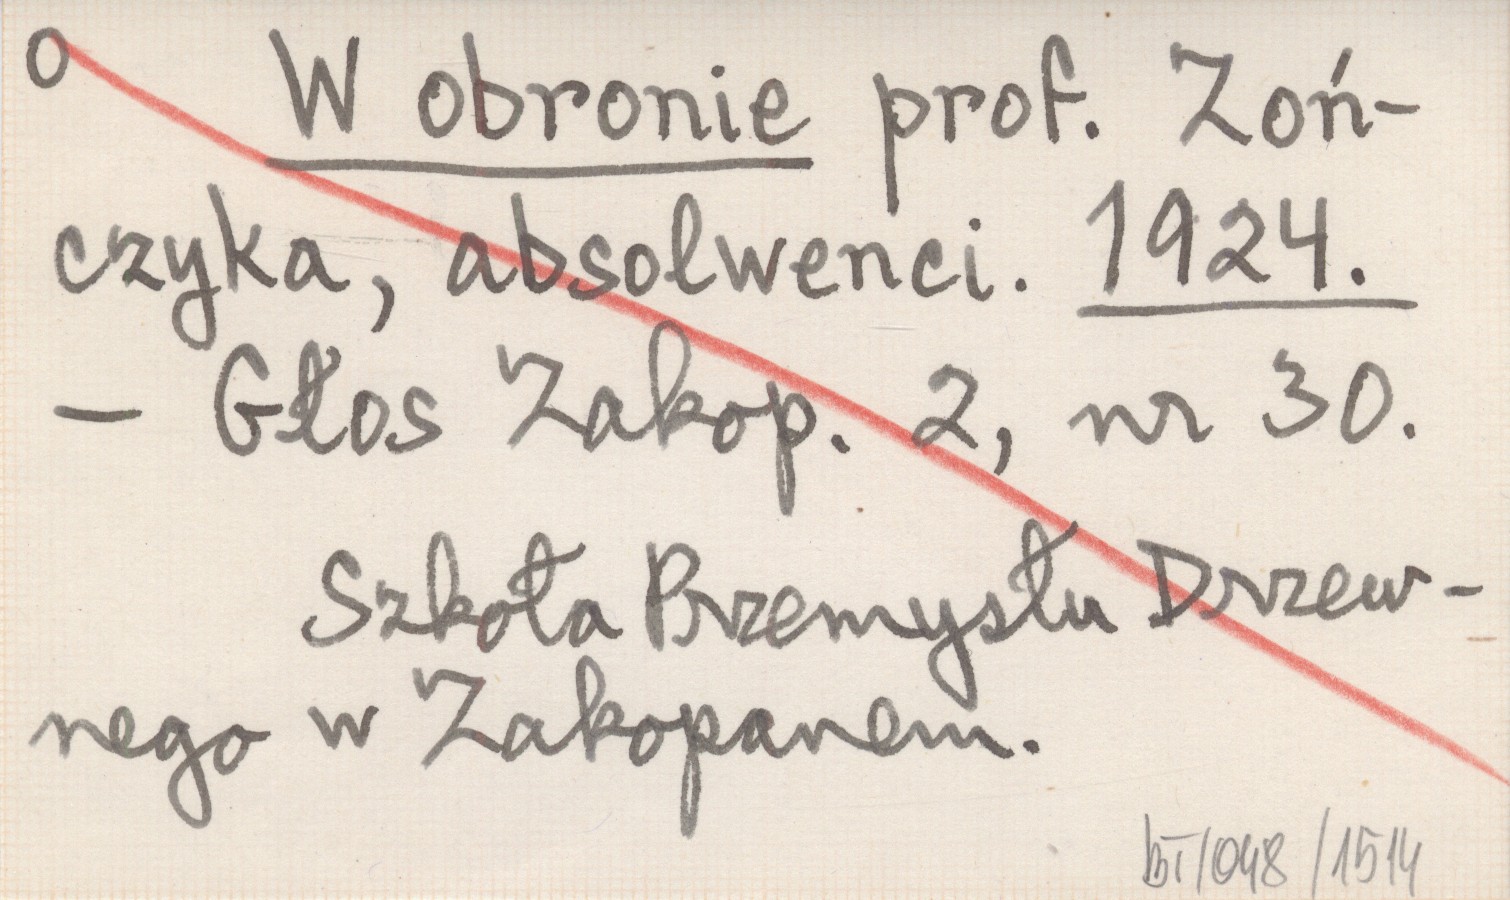 o W obronie prof. Zoń-
czyka, absolwenci. 1924.
- Głos Zakop. 2, nr 30.
Szkoła Przemysłu Drzew-
nego w Zakopanem.
bT/048/1514